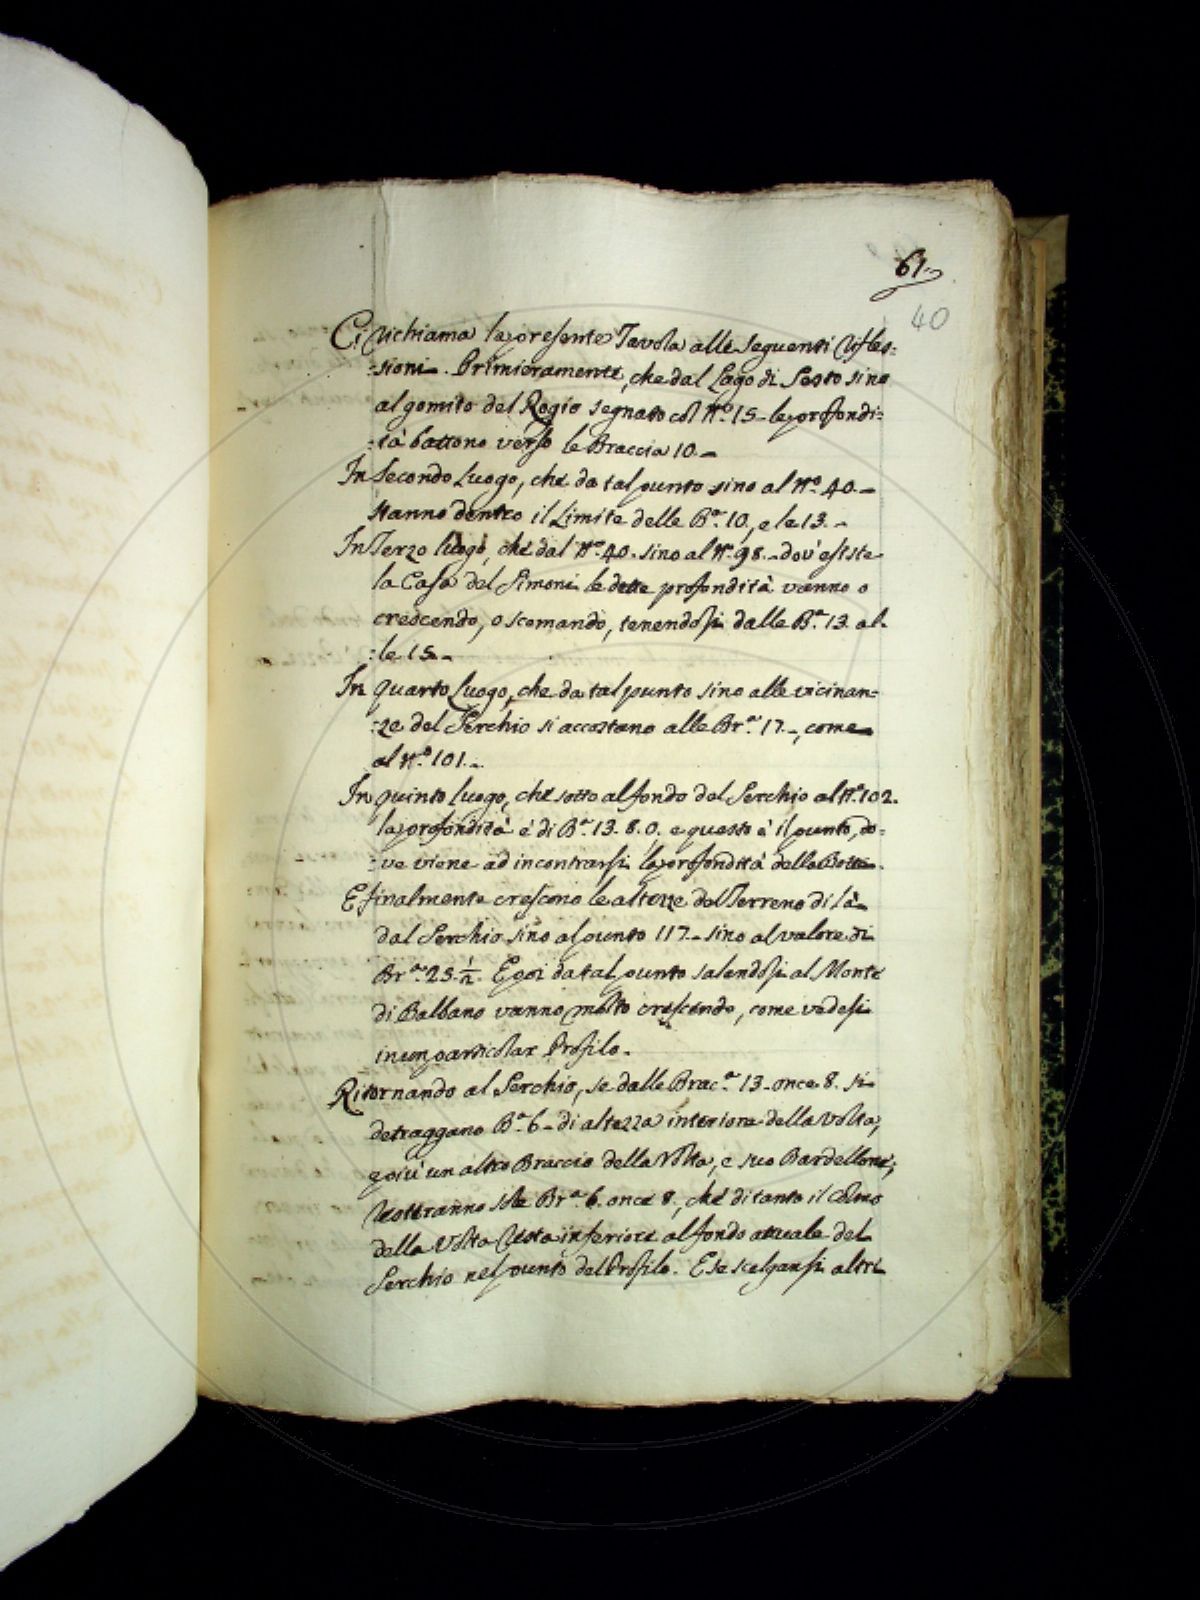 61.
40
Ci richiama la presente Tavola alle seguenti rifles:
:sioni. Primieramente, che dal Lago di Sesto sino
al gomito del Rogio segnato col N.o 15 le profondi:
:tà battono verso le Braccia 10.
In Secondo Luogo, che da tal punto sino al N.o 40.
stanno dentro il Limite delle B.a 10, e le 13.
In Terzo luogo, che dal N.o 40. sino al N.o 98. dov'esiste
la Casa del Simoni le dette profondità vanno o
crescendo, o scemando, tenendosi dalle B.a 13. al
:le 15.
In quarto Luogo, che da tal punto sino alle vicinan:
:ze del Serchio si accostano alle Br.a 17., come
al N.o 101.
In quinto luogo, che sotto al fondo del Serchio al N.o 102.
la profondità è di B.a 13. 8. 0. e questo è il punto, do:
:ve viene ad incontrarsi la profondità della Botte.
E finalmente crescono le altezze del Terreno di là
dal Serchio sino al punto 117. sino al valore di
Br.a 25. 1/2. E poi da tal punto salendosi al Monte
di Balbano vanno molto crescendo, come vedesi
in un particolar Profilo.
Ritornando al Serchio, se dalle Brac.a 13. once 8. si
detraggano B.a 6. di altezza interiore della Volta,
e più un altro Braccio della Volta, e suo Bardellone,
resteranno sole Br.a 6. once 8., che di tanto il colmo
della Volta resta inferiore al fondo attuale del
Serchio nel punto del Profilo. E se scelgansi altri